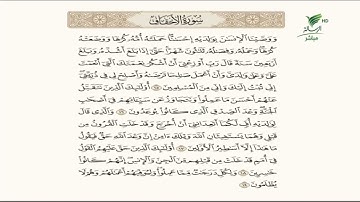 سُورَةُ الأَحْقَافِ
HD
مباشر
وَوَصَّيْنَا ٱلْإِنسَٰنَ بِوَٰلِدَيْهِ إِحْسَٰنًا حَمَلَتْهُ أُمُّهُۥ كُرْهًا وَوَضَعَتْهُ
كُرْهًا وَحَمْلُهُۥ وَفِصَٰلُهُۥ ثَلَٰثُونَ شَهْرًا حَتَّىٰٓ إِذَا بَلَغَ أَشُدَّهُۥ وَبَلَغَ
أَرْبَعِينَ سَنَةً قَالَ رَبِّ أَوْزِعْنِىٓ أَنْ أَشْكُرَ نِعْمَتَكَ ٱلَّتِىٓ أَنْعَمْتَ
عَلَىَّ وَعَلَىٰ وَٰلِدَىَّ وَأَنْ أَعْمَلَ صَٰلِحًا تَرْضَىٰهُ وَأَصْلِحْ لِى فِى ذُرِّيَّتِىٓ
إِنِّى تُبْتُ إِلَيْكَ وَإِنِّى مِنَ ٱلْمُسْلِمِينَ ١٥ أُو۟لَٰٓئِكَ ٱلَّذِينَ نَتَقَبَّلُ
عَنْهُمْ أَحْسَنَ مَا عَمِلُوا۟ وَنَتَجَاوَزُ عَن سَيِّـَٔاتِهِمْ فِىٓ أَصْحَٰبِ
ٱلْجَنَّةِ وَعْدَ ٱلصِّدْقِ ٱلَّذِى كَانُوا۟ يُوعَدُونَ ١٦ وَٱلَّذِى قَالَ
لِوَٰلِدَيْهِ أُفٍّ لَّكُمَآ أَتَعِدَانِنِىٓ أَنْ أُخْرَجَ وَقَدْ خَلَتِ ٱلْقُرُونُ مِن
قَبْلِى وَهُمَا يَسْتَغِيثَانِ ٱللَّهَ وَيْلَكَ ءَامِنْ إِنَّ وَعْدَ ٱللَّهِ حَقٌّ فَيَقُولُ
مَا هَٰذَآ إِلَّآ أَسَٰطِيرُ ٱلْأَوَّلِينَ ١٧ أُو۟لَٰٓئِكَ ٱلَّذِينَ حَقَّ عَلَيْهِمُ ٱلْقَوْلُ
فِىٓ أُمَمٍ قَدْ خَلَتْ مِن قَبْلِهِم مِّنَ ٱلْجِنِّ وَٱلْإِنسِ إِنَّهُمْ كَانُوا۟
خَٰسِرِينَ ١٨ وَلِكُلٍّ دَرَجَٰتٌ مِّمَّا عَمِلُوا۟ وَلِيُوَفِّيَهُمْ أَعْمَٰلَهُمْ وَهُمْ لَا
يُظْلَمُونَ ١٩